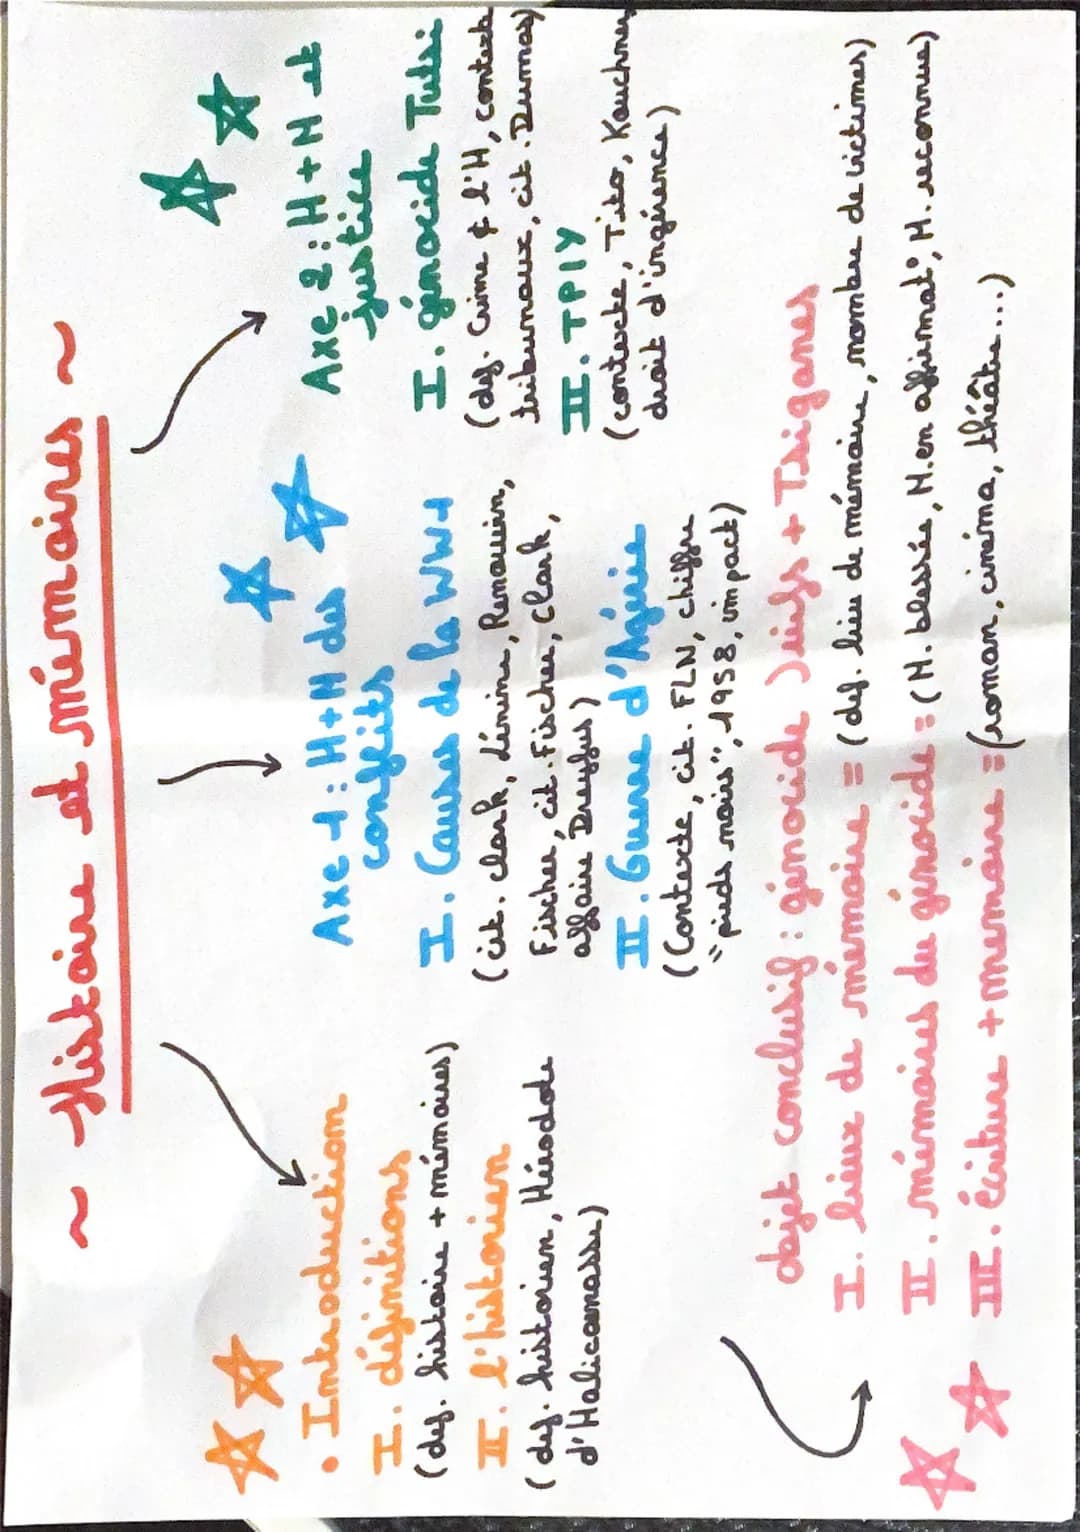 ~ Histoire et mémoires ~
• Introduction
I. définitions
(def. histoire + mémoires)
II. l'historien
(def. historien, Hérodote
d'Halicarnasse)
Axe 1 : H+M des
conflits
I. Causes de la WW1
(cit. Clark, Lénine, Renouvin,
Fischer, cit. Fischer, Clark,
affaire Dreyfus)
II. Guerre d'Agérie
(Contexte, cit. FLN, chiffre
"pieds noirs", 1958, impact)
Axe 2 : H+M et
justice
I. génocide Tutsi
(def. Crime ≠ l'H, context
tribunaux, cit. Dumas)
II. TPIY
(contexte, Tito, Kouchner,
droit d'ingérence)
objet conclusif : génocide Juifs + Tsiganes
I. lieux de mémoire = (def. lieu de mémoire, nombre de victimes)
II. mémoires du génocide = (M. blessée, M. en affirmat°, M. reconnue)
III. écriture + memoire = (roman, cinéma, théâtre...)